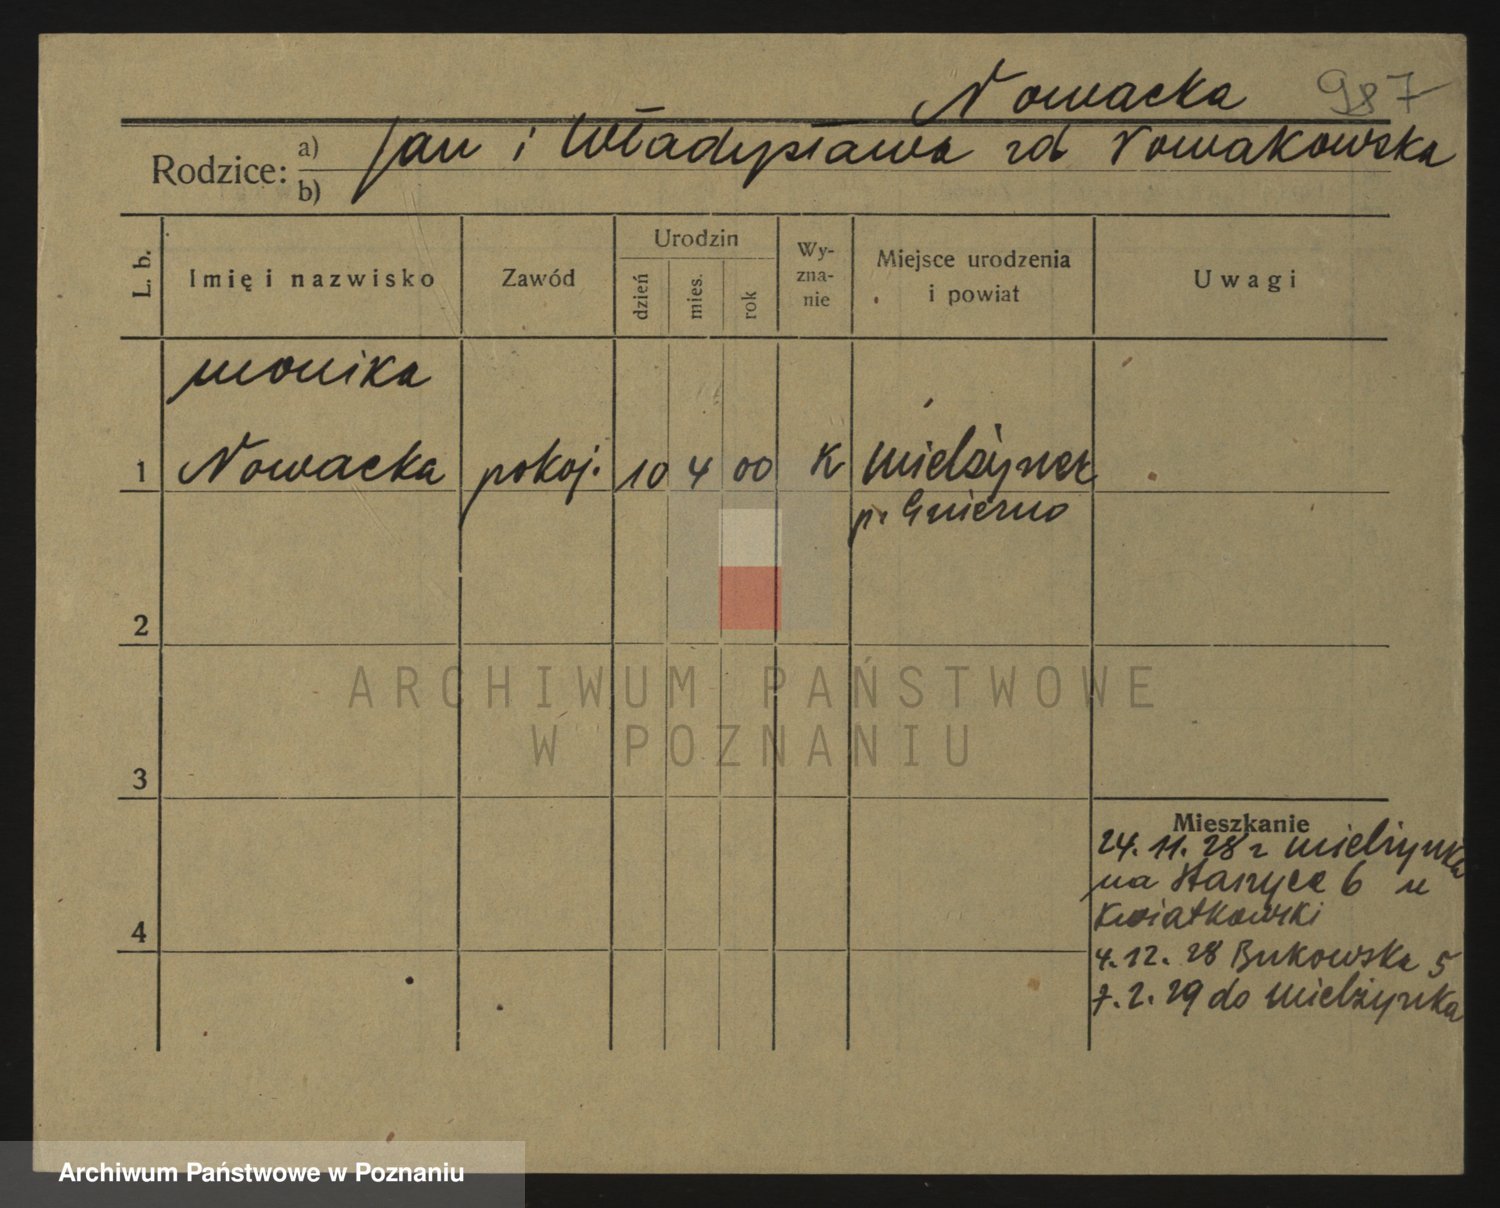 Nowacka 987
Rodzice: a) b) Jan i Władysława zd Nowakowska
L. b.
Imię i nazwisko
Zawód
Urodzin
dzień
mies.
rok
Wy-
zna-
nie
Miejsce urodzenia
i powiat
Uwagi
Monika
1 Nowacka pokoj. 10 4 00 K Mielżynek
p. Gniezno
2
ARCHIWUM PAŃSTWOWE
W POZNANIU
3
Mieszkanie
24. 11. 28 z Mielżynka
na Staszyca 6 u
Kwiatkowski
4
4. 12. 28 Bukowska 5
7. 2. 29 do Mielżynka
Archiwum Państwowe w Poznaniu